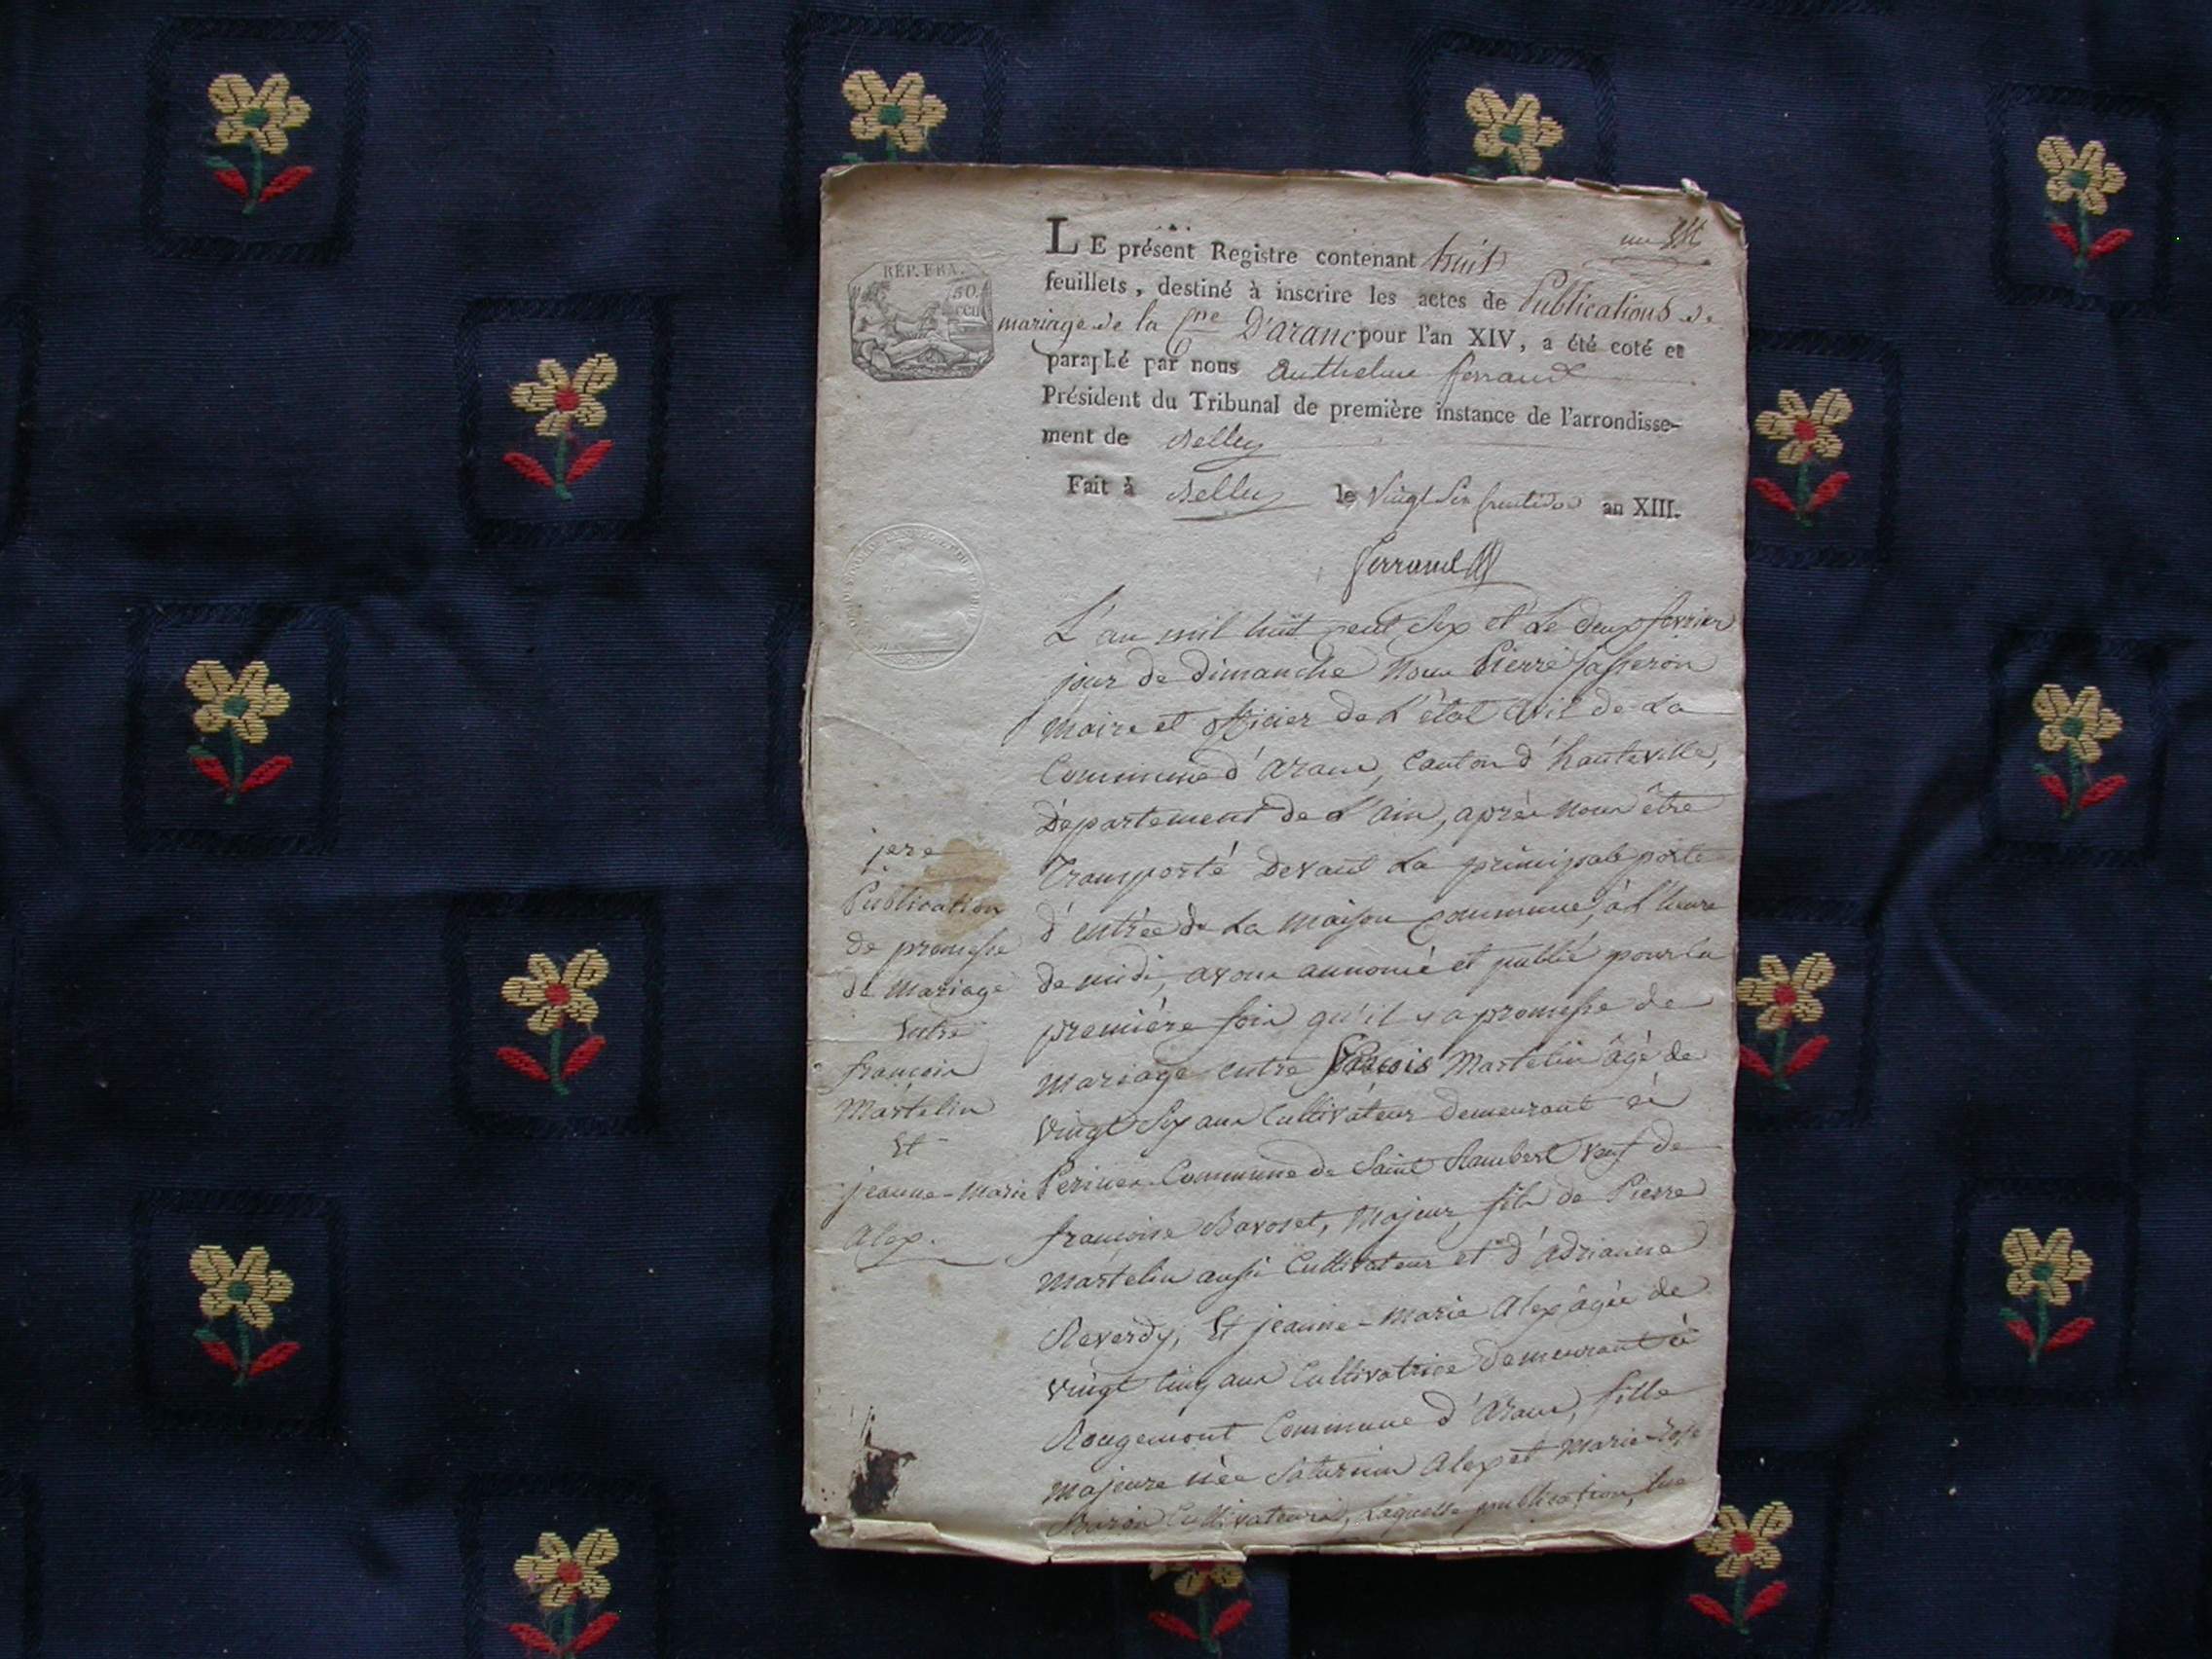 un
LE présent Registre contenant huit
feuillets, destiné à inscrire les actes de Publications de
mariage de la Cne D'aranc pour l'an XIV, a été coté et
paraphé par nous Anthelme ferrand
Président du Tribunal de première instance de l'arrondisse-
ment de Belley
Fait à Belley le vingt Six fructidor an XIII.
ferrand
REP. FRA.
50.
cen
L'an mil huit cent Six et Le deux février
jour de dimanche Nous Pierre Jasseron
Maire et officier de L'état Civil de La
Commune d'aranc, Canton d'hauteville,
Département de L'ain, après nous être
Transporté Devant La principale porte
d'entrée de La maison commune, à L'heure
de midi, avons annoncé et publié pour la
première fois qu'il y a promesse de
mariage entre françois Martelin âgé de
vingt Six ans Cultivateur demeurant à
Commune de Saint Rambert veuf de
françoise Bavoset, Majeur, fils de Pierre
Martelin aussi Cultivateur et d'adrianne
Reverdy; Et jeanne-marie Alex âgée de
vingt cinq ans Cultivatrice demeurant à
Rougemont Commune d'Aranc, fille
majeure née Saturnin Alex et Marie-rose
Cultivateurs, Laquelle publication, lue
jere
Publication
de promesse
de Mariage
Entre
françois
Martelin
Et
jeanne-marie
Alex.